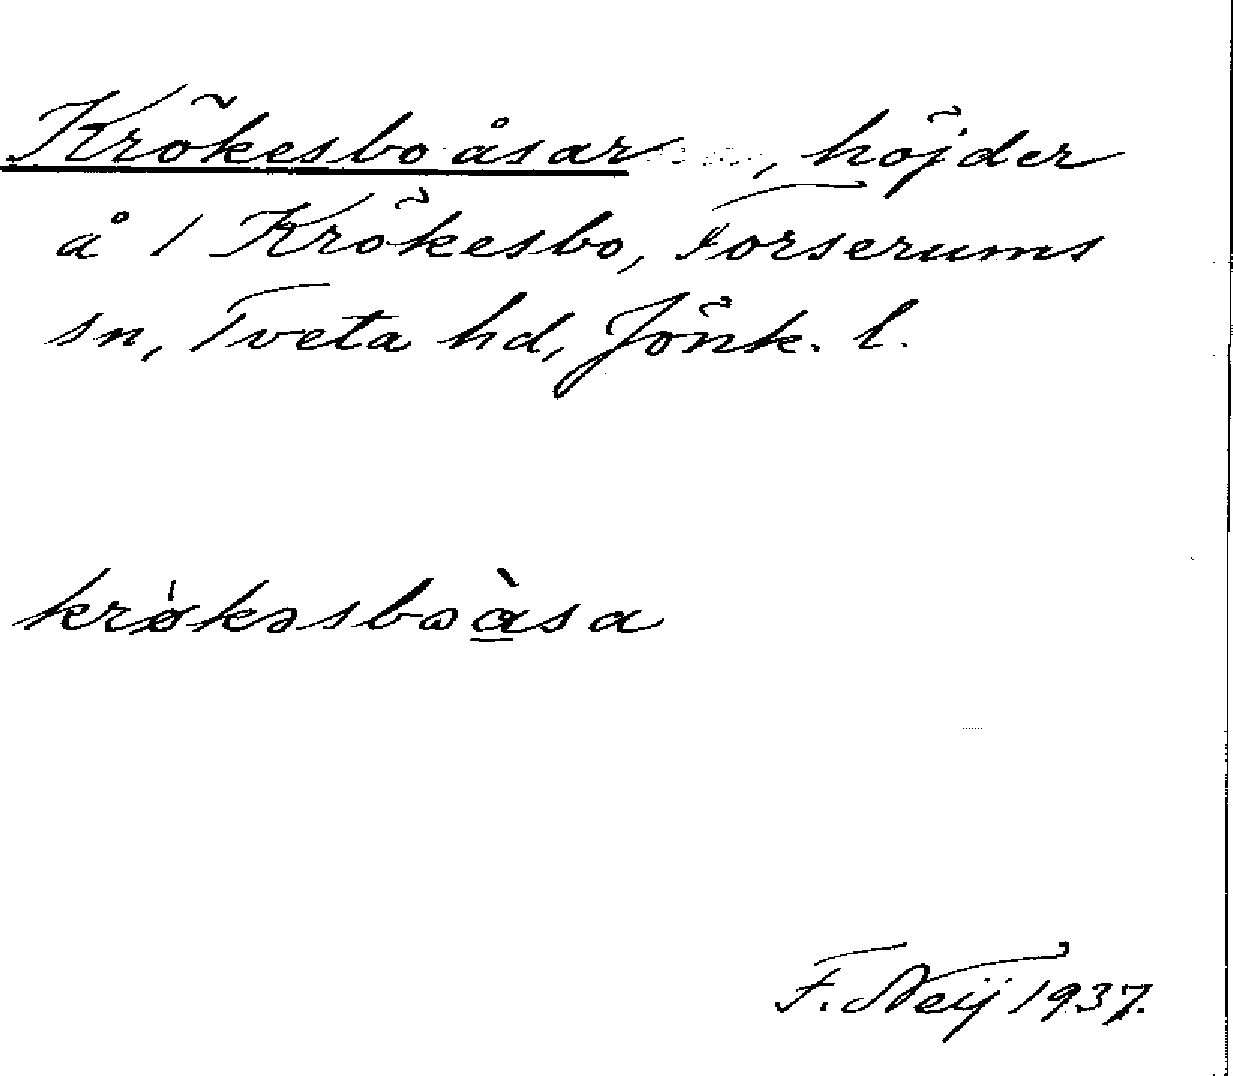 Krökesboåsar, höjder
å 1 Krökesbo, Forserums
sn, Tveta hd, Jönk. l.
krø̀kəsbωàsa
F. Neij 1937.